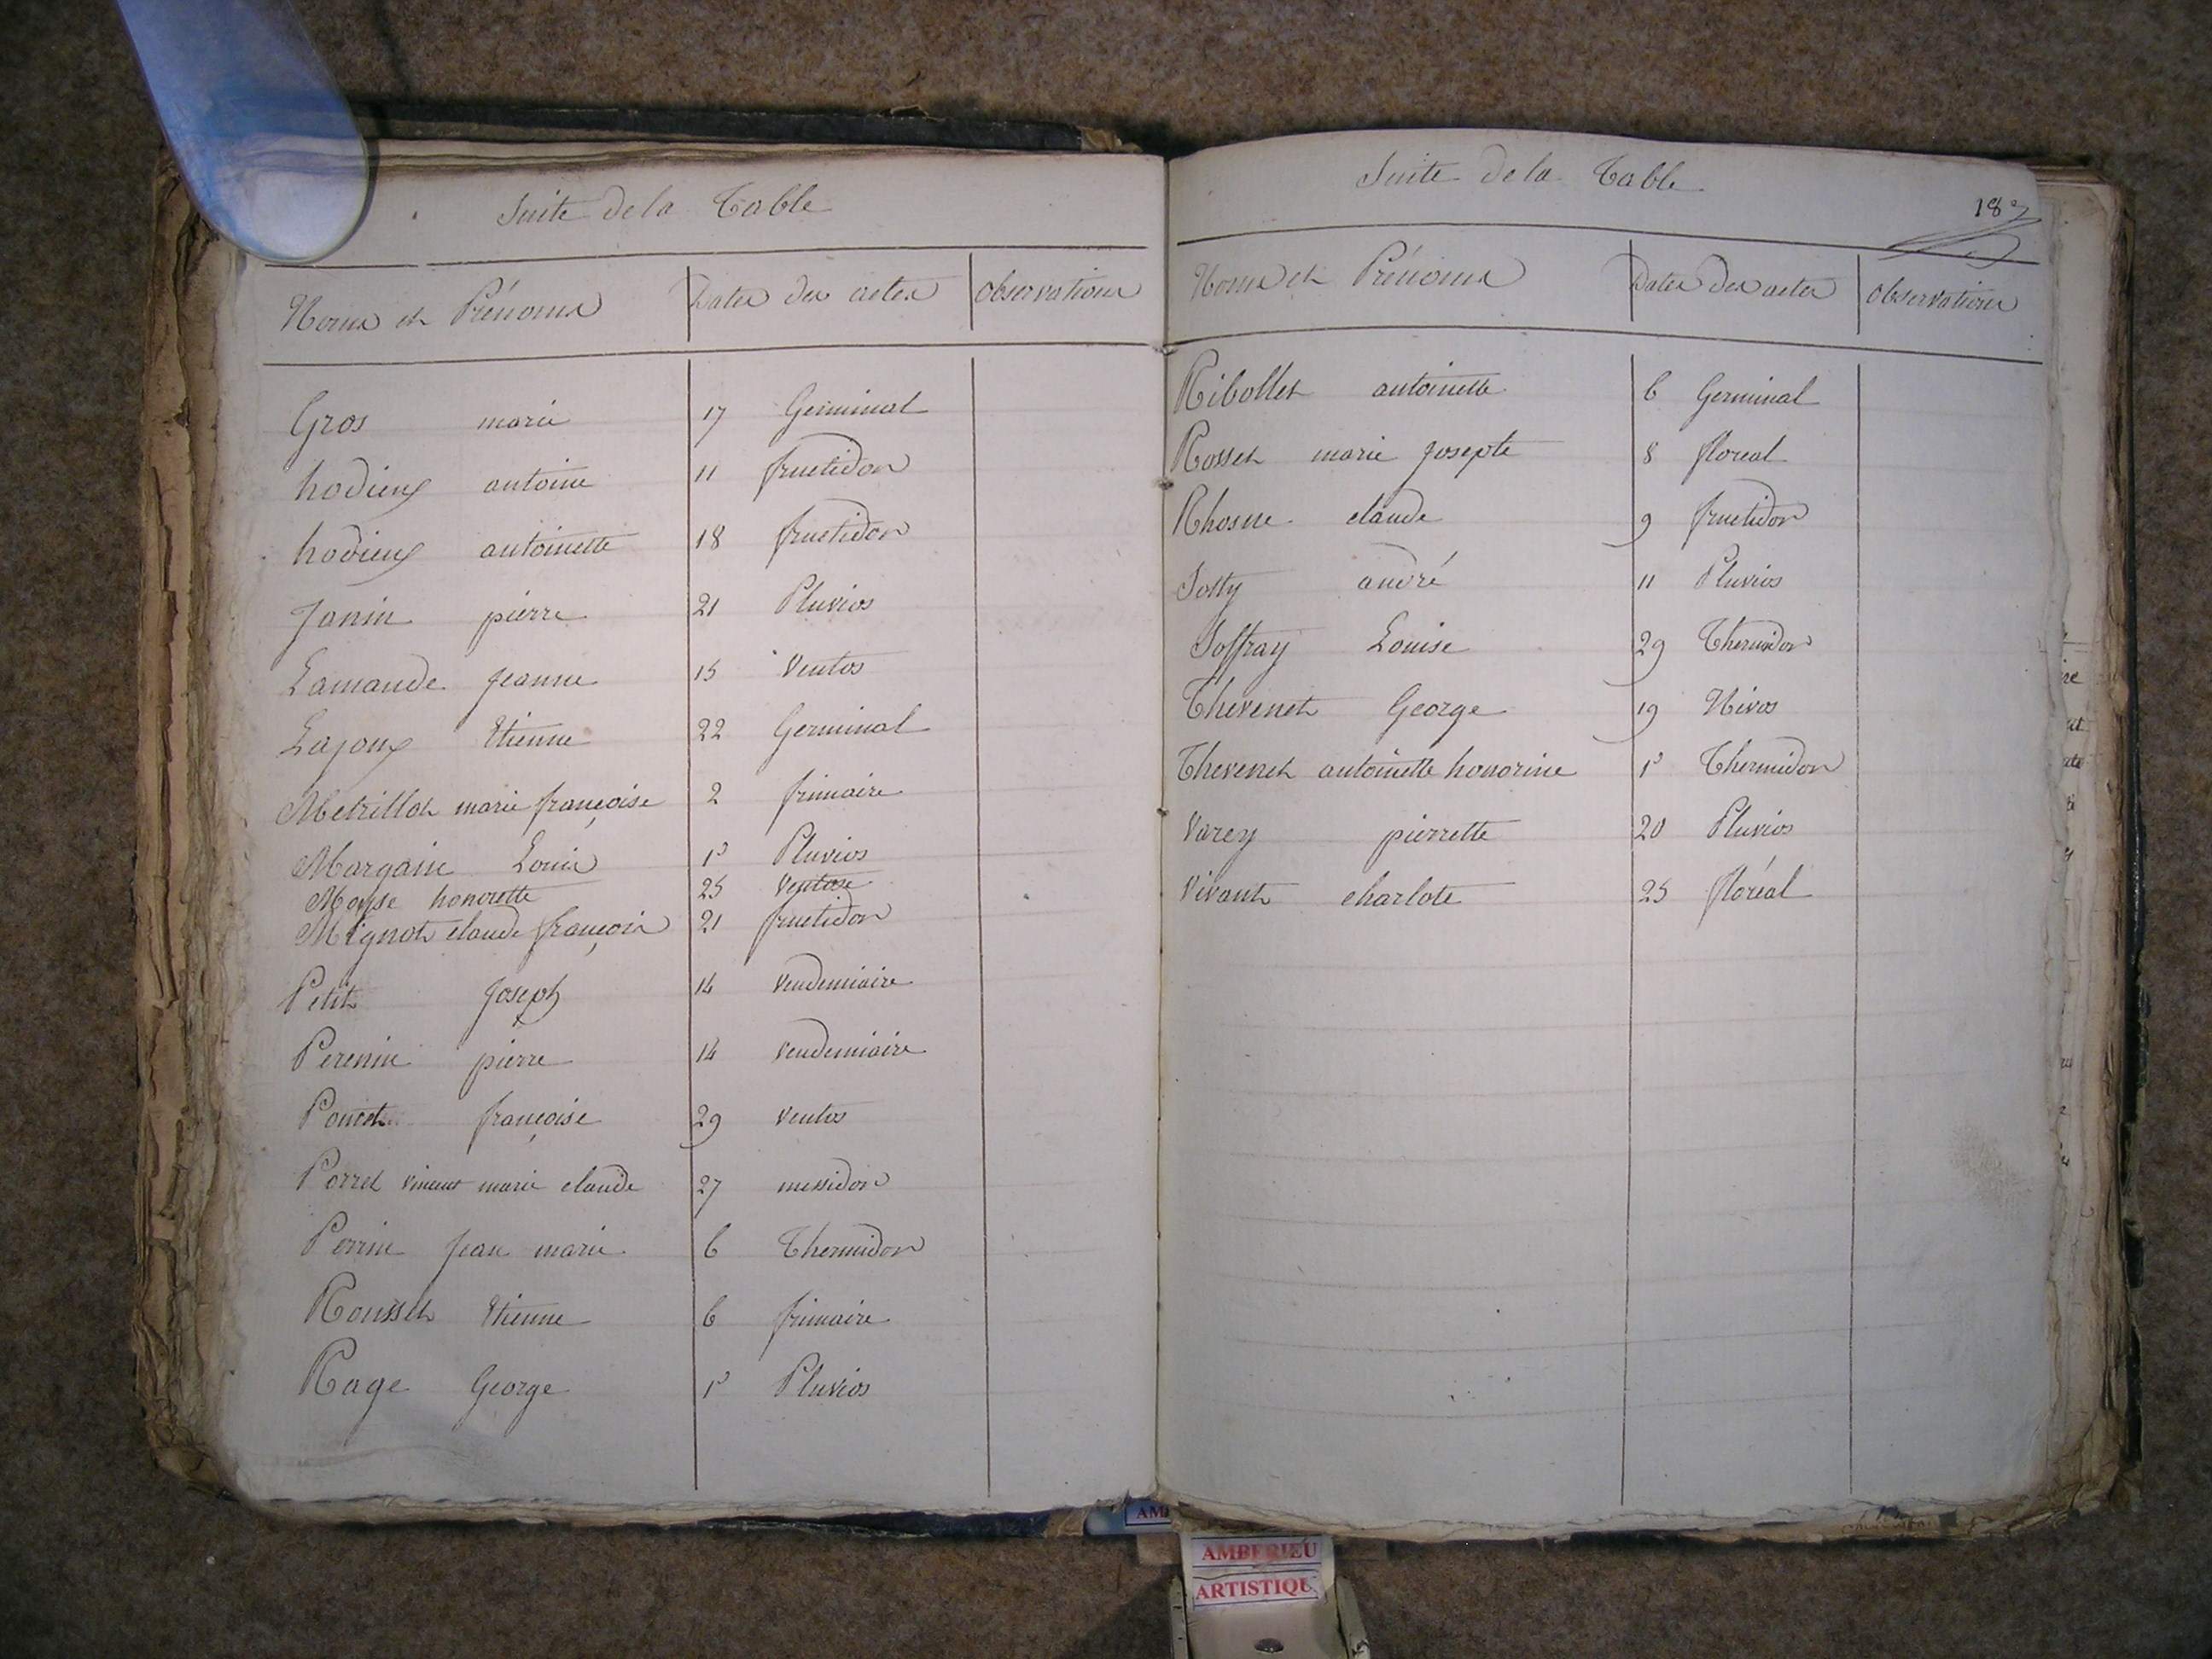 Suite de la Table
Noms et Prénoms Dates des actes Observations
Gros marie 17 Germinal
hodieux antoine 11 fructidor
hodieux antoinette 18 fructidor
Janin pierre 21 Pluvios
Lamande jeanne 15 Ventos
Lajoux Etienne 22 Germinal
Metrillot marie françoise 2 frimaire
Margain Louis 1er Pluvios
Moyse honorette 25 Ventose
Mignot claude françois 21 fructidor
Petit Joseph 14 Vendemiaire
Perenin pierre 14 Vendemiaire
Poncet françoise 29 Ventos
Porret Vincent marie claude 27 messidor
Perrin Jean marie 6 Thermidor
Rousset Etienne 6 frimaire
Rage George 1er Pluvios
Suite de la Table
Noms et Prénoms Dates des actes Observations
Ribollet antoinette 6 Germinal
Rosset marie Josepte 8 floreal
Rhosne claude 9 fructidor
andré 11 Pluvios
Soffray Louise 29 Thermidor
Thevenet George 19 Nivos
Thevenet antoinette honorine 1er Thermidor
Varey pierrette 20 Pluvios
Vivant charlote 25 floréal
AMBERIEU
ARTISTIQU